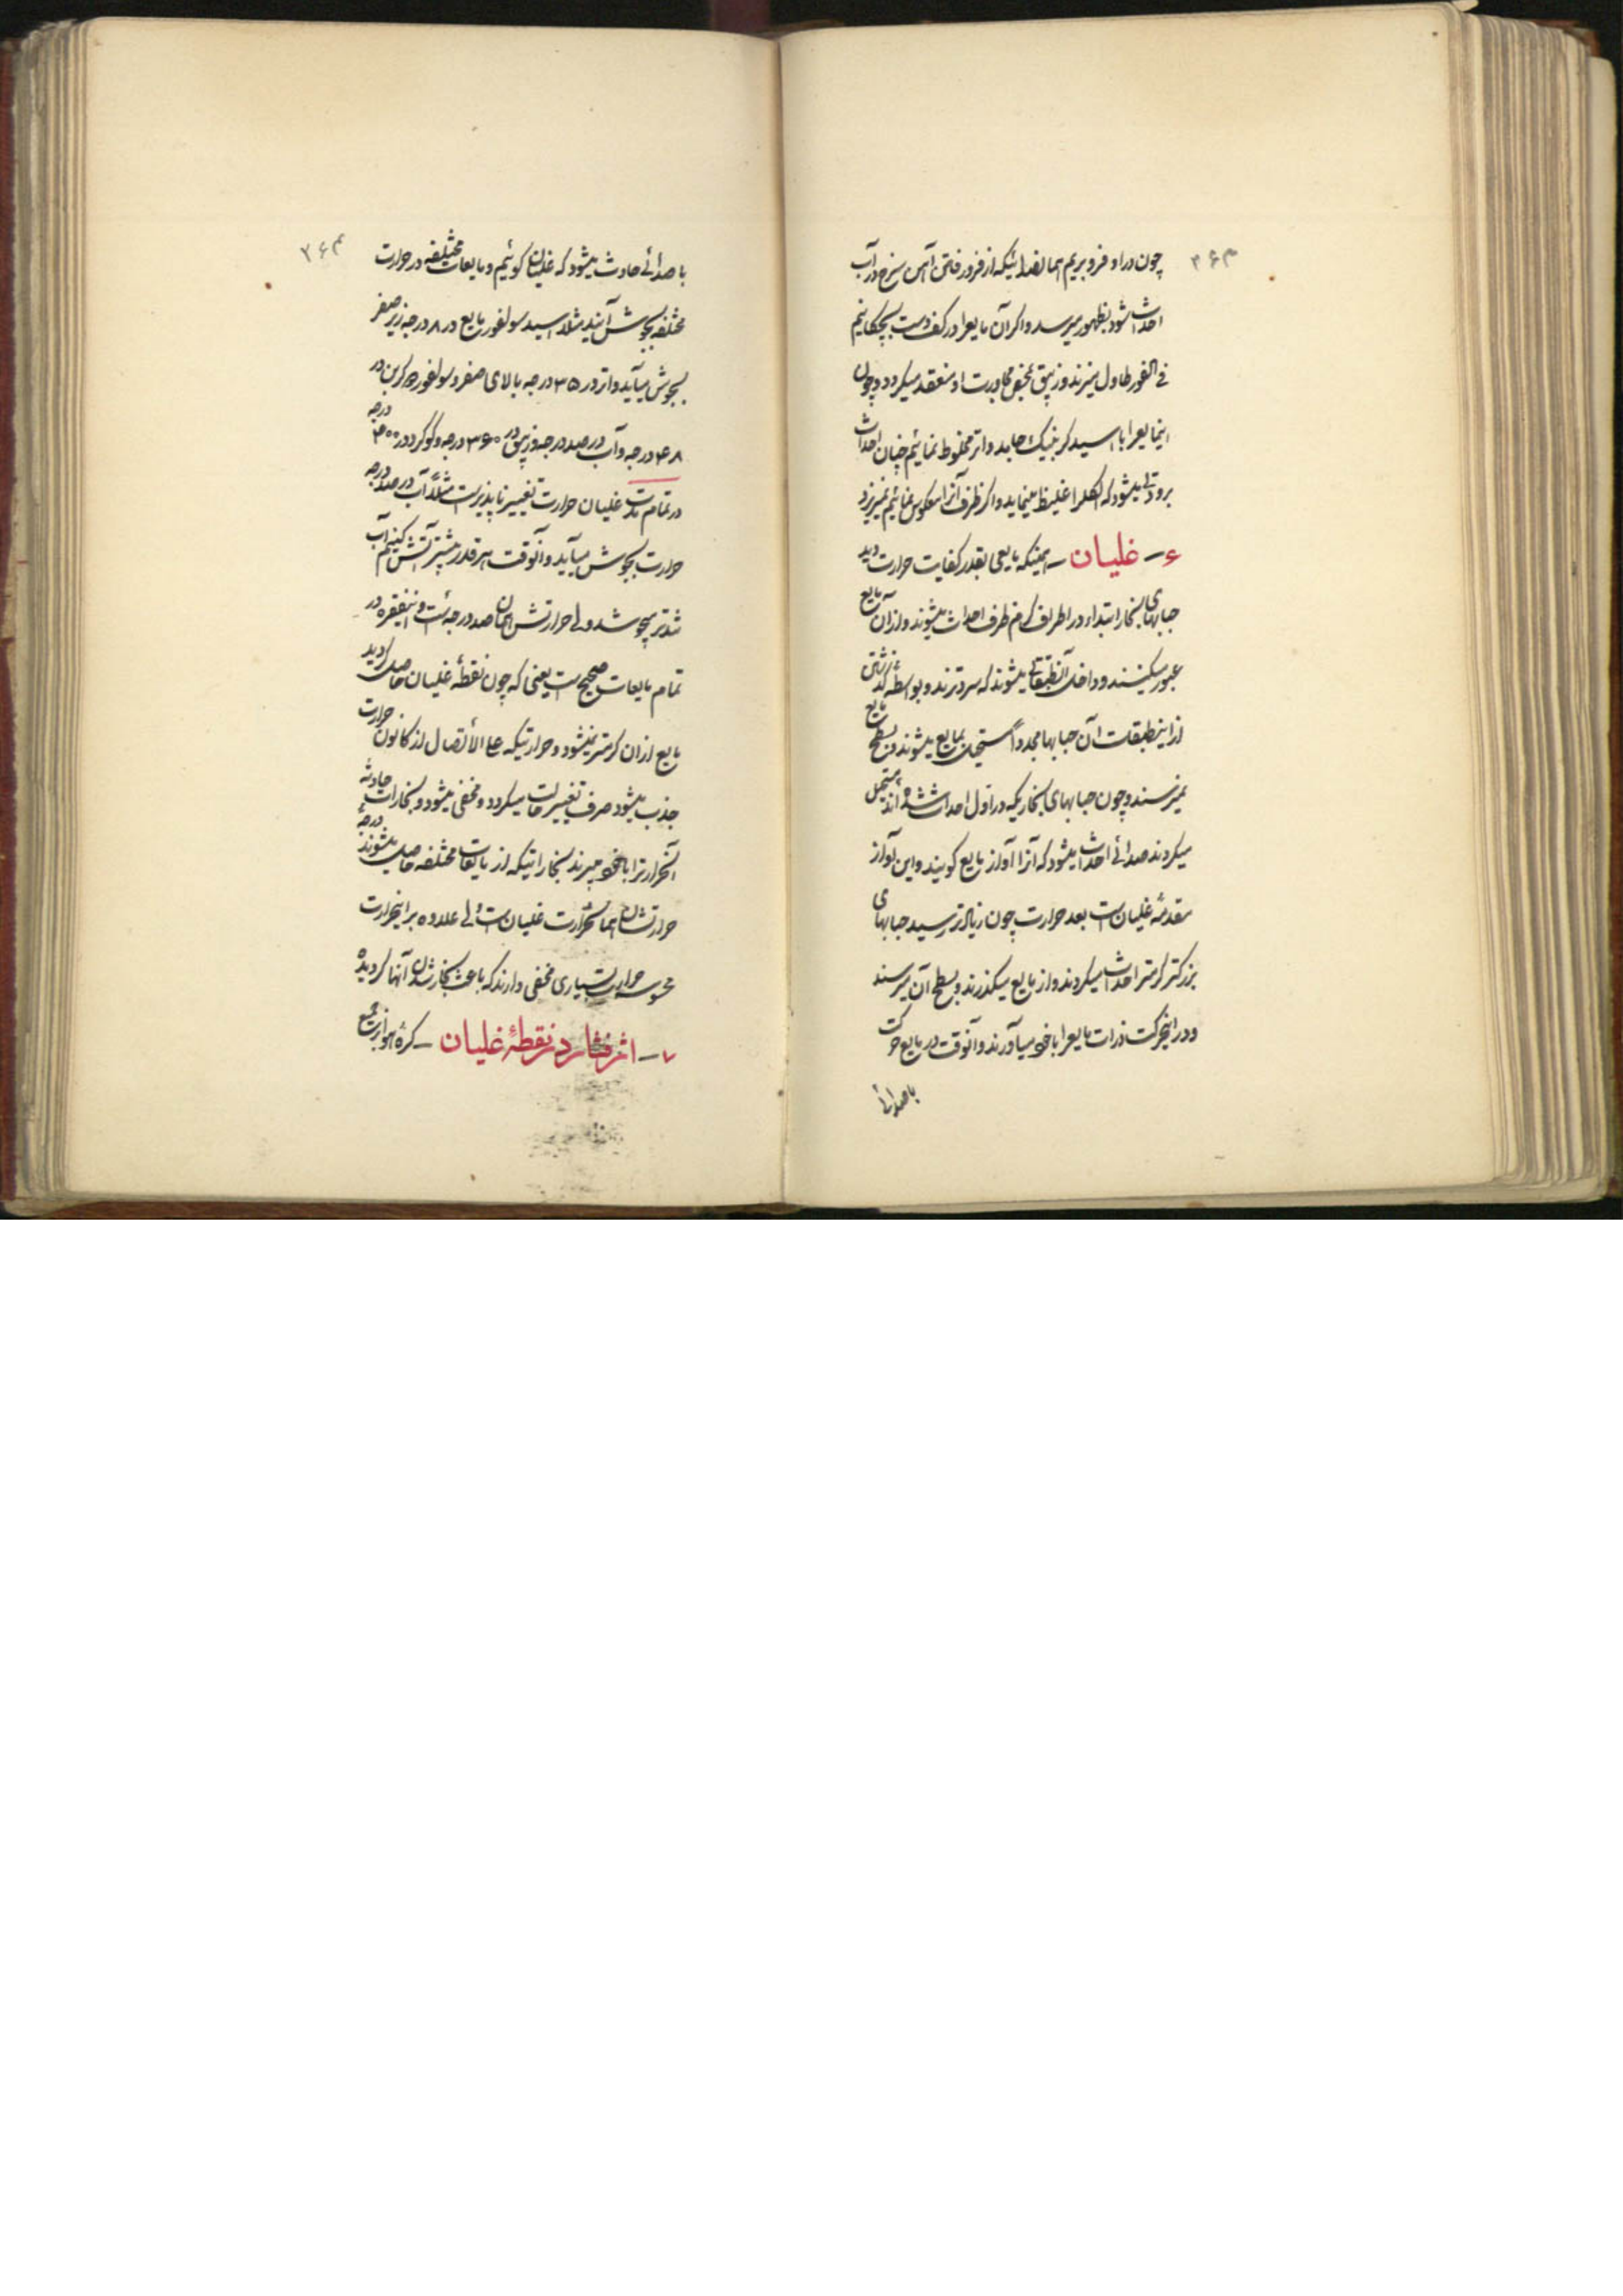 ۳۶۳
چون در او فرو بریم همان صدائیکه از فرو رفتن آهن سرخ در آب
احداث شود بظهور میرسد و اگر آن مایع را در کف دست بچکانیم
فی الفور طاول میزند و زیبق بمحض مجاورت او منعقد میگردد و چون
اینمایع را با اسید کربنیک جامد و اتر مخلوط نمائیم چنان احداث
برودتی میشود که الکلرا غلیظ مینماید و اگر ظرف آنرا معکوس نمائیم نمیریزد
۶ - غلیان - همینکه مایعی بقدر کفایت حرارت دید
حبابهای بخار ابتداء در اطراف گرم ظرف احداث میشوند و از آن مایع
عبور میکنند و داخل آنطبقاتی میشوند که سردترند و بواسطه گذشتن
از اینطبقات آن حبابها مجدداً مستحیل بمایع میشوند و بسطح مایع
نمیرسند و چون حبابهای بخاریکه در اول احداث شده اند مستحیل
میگردند صدائی احداث میشود که آنرا آواز مایع گویند و این آواز
مقدمه غلیان است بعد حرارت چون زیادتر رسید حبابهای
بزرگتر گرمتر احداث میگردند و از مایع میگذرند و بسطح آن میرسند
و در اینحرکت ذرات مایع را با خود میآورند و آنوقت در مایع حرکت
با صدائی
۳۶۴
با صدائی حادث میشود که غلیان گوئیم و مایعات مختلفه در حرارت
مختلفه بجوش آیند مثلا اسید سولفور مایع در ۸ درجه زیر صفر
بجوش میآید و اتر در ۳۵ درجه بالای صفر و سولفور د کربن در
۴۸ درجه و آب در صد درجه و زیبق در ۳۶۰ درجه و گوگرد در ۴۰۰ درجه
در تمام مدت غلیان حرارت تغییر ناپذیر است مثلاً آب در صد درجه
حرارت بجوش میآید و آنوقت هر قدر بیشتر آتش کنیم آب
تندتر میجوشد ولی حرارتش همان صد درجه است و اینفقره در
تمام مایعات صحیح است یعنی که چون نقطهٔ غلیان حاصل گردید
مایع از آن گرمتر نمیشود و حرارتیکه علی الاتصال از کانون حرارت
جذب میشود صرف تغییر حالت میگردد و مخفی میشود و بخارات حادثه
آنحرارترا با خود میبرند بخاراتیکه از مایعات مختلفه حاصل میشوند درجهٔ
حرارتشان همان حرارت غلیان است ولی علاوه بر اینحرارت
محسوسه حرارت بسیاری مخفی دارند که باعث بخار شدن آنها گردیده
۷ - اثر فشار در نقطهٔ غلیان - کرهٔ هوا بر جمیع